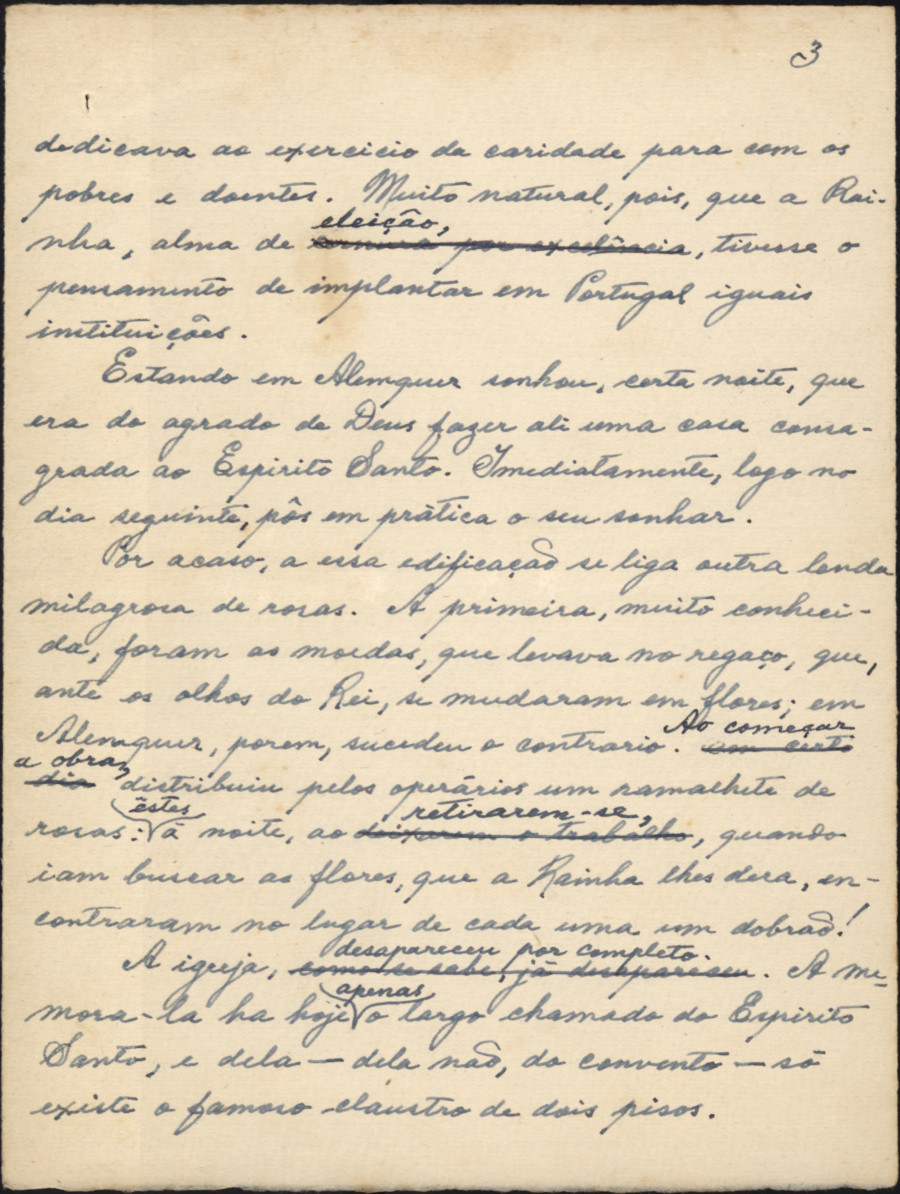 3
dedicava ao exercicio da caridade para com os
pobres e doentes. Muito natural, pois, que a Rai-
eleição,
nha, alma de ternura por excelência, tivesse o
pensamento de implantar em Portugal iguais
instituições.
Estando em Alemquer sonhou, certa noite, que
era do agrado de Deus fazer ali uma casa consa-
grada ao Espirito Santo. Imediatamente, logo no
dia seguinte, pôs em prática o seu sonhar.
Por acaso, a essa edificação se liga outra lenda
milagrosa de rosas. A primeira, muito conheci-
da, foram as moedas, que levava no regaço, que,
ante os olhos do Rei, se mudaram em flores; em
Ao começar
Alemquer, porem, sucedeu o contrario. em certo
a obra,
dia distribuiu pelos operários um ramalhete de
êstes retirarem-se,
rosas: á noite, ao deixarem o trabalho, quando
iam buscar as flores, que a Rainha lhes dera, en-
contraram no lugar de cada uma um dobrão!
desapareceu por completo.
A igreja, como se sabe, já desapareceu. A me-
apenas
mora-la ha hoje o largo chamado do Espirito
Santo, e dela — dela não, do convento — só
existe o famoso claustro de dois pisos.